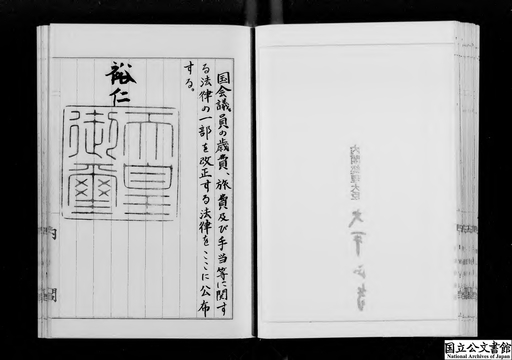 国会議員の歳費、旅費及び手当等に関す
る法律の一部を改正する法律をここに公布
する。
裕仁
天皇
御璽
内閣
内閣総理大臣
大平正芳
国立公文書館
National Archives of Japan